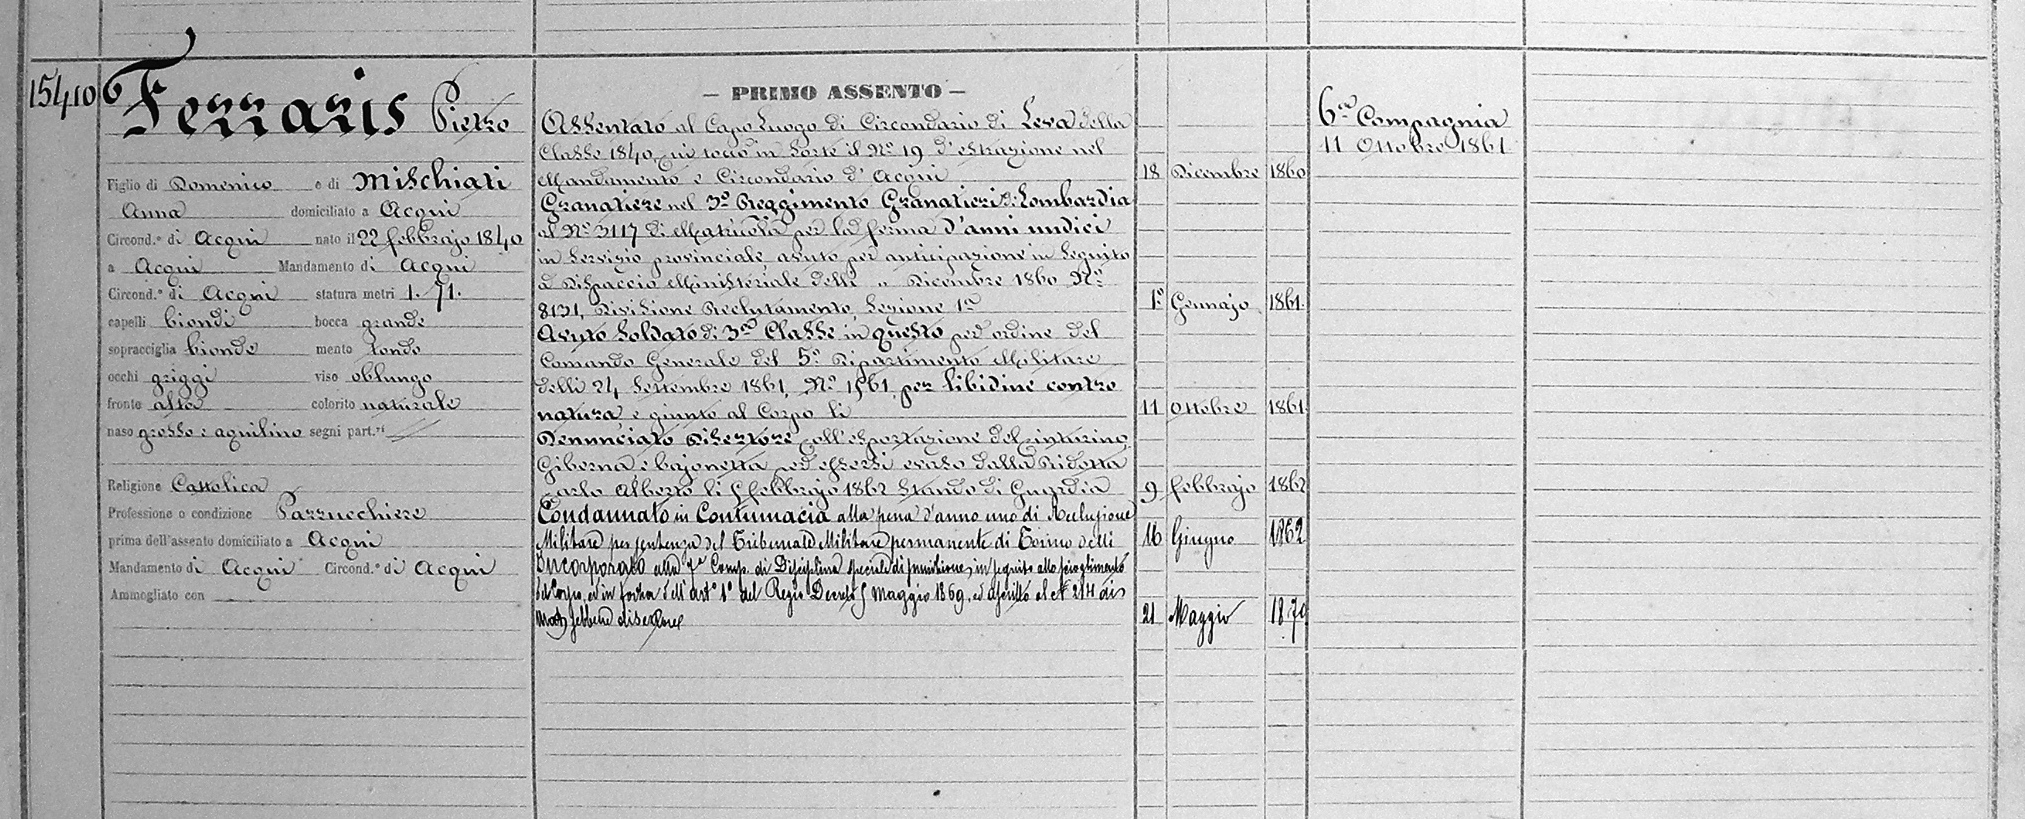 15410
Ferraris Pietro
Figlio di Domenico e di Mischiati
Anna domiciliato a Acqui
Circond.º di Acqui nato il 22 febbrajo 1840
a Acqui Mandamento di Acqui
Circond.º di Acqui statura metri 1.71.
capelli biondi bocca grande
sopracciglia bionde mento tondo
occhi griggi viso oblungo
fronte alta colorito naturale
naso grosso e aquilino segni part.ri
Religione Cattolica
Professione o condizione Parrucchiere
prima dell'assento domiciliato a Acqui
Mandamento di Acqui Circond.º di Acqui
Ammogliato con
— PRIMO ASSENTO —
Assentato al Capo Luogo di Circondario di Leva della
Classe 1840, cui toccò in sorte il Nº 19 d'estrazione nel
Mandamento e Circondario d'Acqui 18 Dicembre 1860
Granatiere nel 3º Reggimento Granatieri di Lombardia
al Nº 3117 di Matricola per la ferma d'anni undici
in servizio provinciale avuto per anticipazione in seguito
a Dispaccio Ministeriale delli „ Dicembre 1860 Nº
8131, Divisione Reclutamento, Sezione 1ª 1º Gennajo 1861.
Avuto Soldato di 3ª Classe in questo per ordine del
Comando Generale del 5º Dipartimento Militare
delli 24 Settembre 1861, Nº 1561, per libidine contro
natura e giunto al Corpo li 11 Ottobre 1861.
Denunciato Disertore coll'esportazione del cinturino,
Giberna e bajonetta per essersi evaso dalla Ridotta
Carlo Alberto li 5 febbrajo 1862 stando di Guardia 9 febbrajo 1862
Condannato in Contumacia alla pena d'anno uno di Reclusione
Militare per sentenza del Tribunale Militare permanente di Torino delli 16 Giugno 1862
Incorporato alla 7ª Comp. di Disciplina speciale di punizione, in seguito allo scioglimento
del Corpo, ed in forza dell'art.º 1º del Regio Decreto 5 Maggio 1869, ed ascritto al Nº 214 di
Mat. sebbene disertore 21 Maggio 1870
6ª Compagnia
11 Ottobre 1861